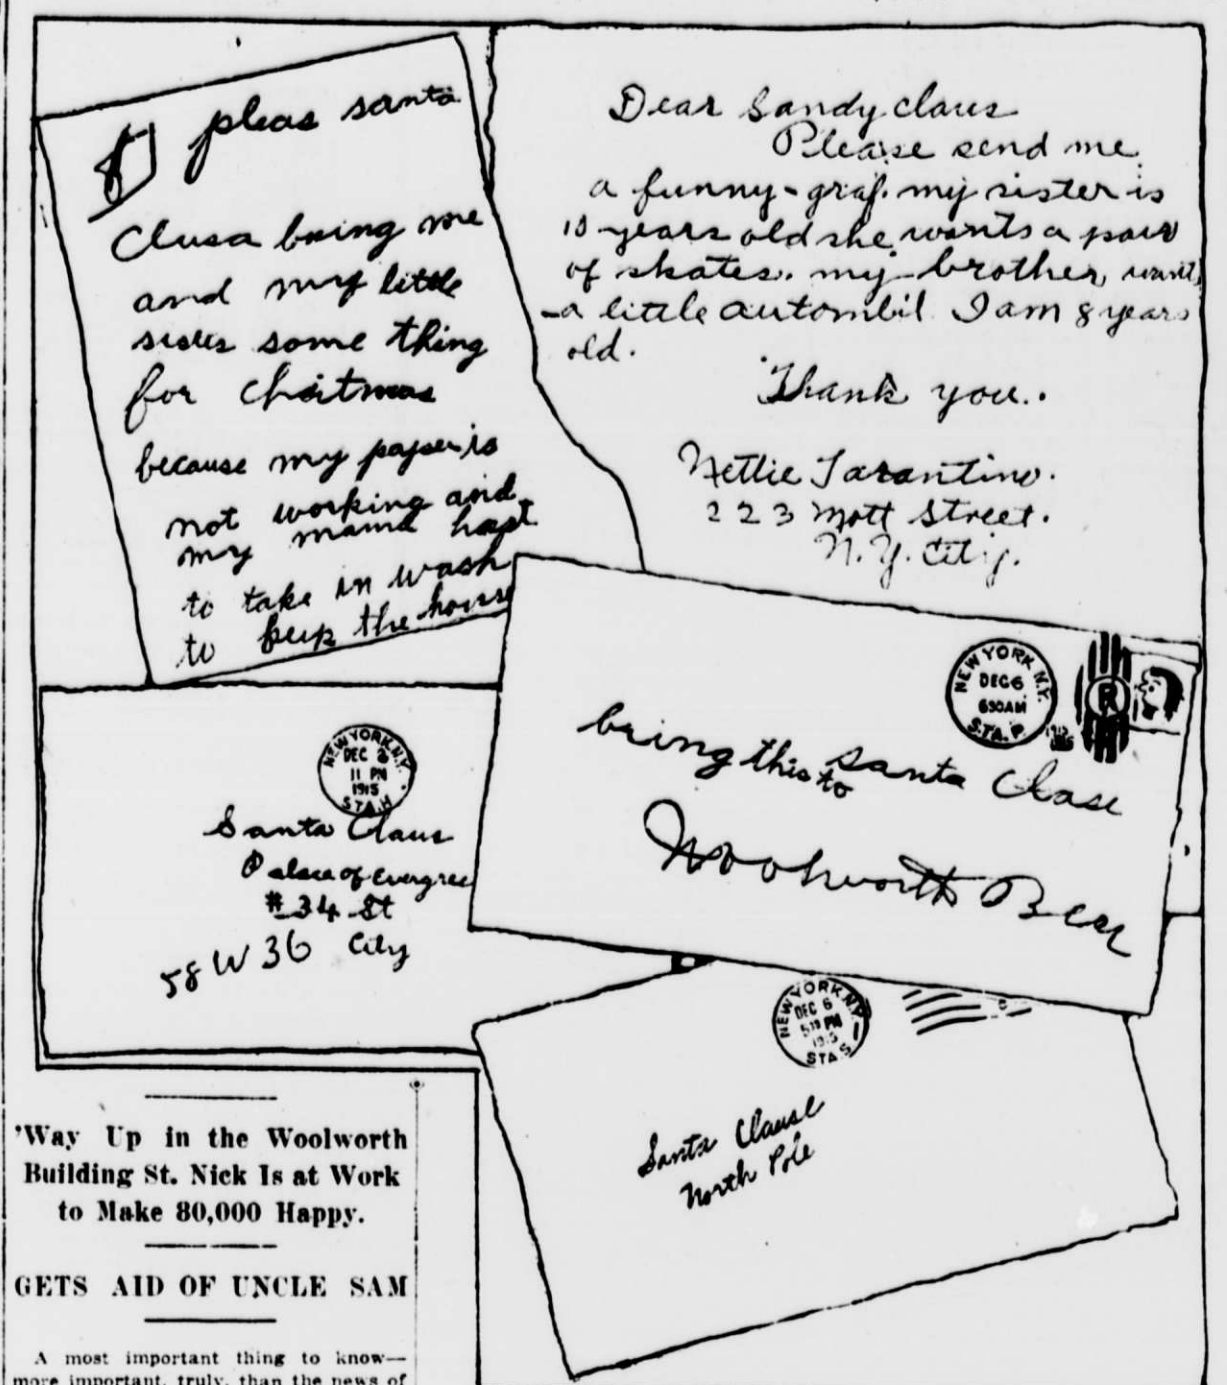 pleas santa
Clusa bring me
and my little
sister some thing
for chritmas
because my paper is
not working and
my mama hast
to take in wash
to keep the house
Dear Sandy claus
Please send me
a funny-graf. my sister is
10 years old she wants a pair
of skates. my brother wants
a little autombil I am 8 years
old.
Thank you..
Nettie Tarantino.
223 Mott Street.
N.Y. City.
NEW YORK, N.Y.
DEC 6
630AM
STA. P.
R
1915
bring this to santa Clase
Woolworth Beer
NEW YORK, N.Y.
DEC
11 PM
1915
STA. H
Santa Claus
Palace of evergree
# 34 St
58 W 36 City
NEW YORK, N.Y.
DEC 6
PM
1915
STA. S.
Santa Clause
North Pole
'Way Up in the Woolworth
Building St. Nick Is at Work
to Make 80,000 Happy.
GETS AID OF UNCLE SAM
A most important thing to know—
more important, truly, than the news of